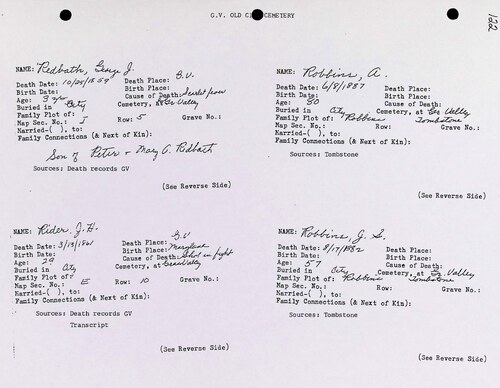 G.V. OLD CITY CEMETERY
122
NAME: Redbath, George J.
Death Date: 10/25/1859 Death Place: G.V.
Birth Date: Birth Place:
Age: 3 yrs Cause of Death: Scarlet fever
Buried in City Cemetery, at Grs Valley
Family Plot of:
Map Sec. No.: 5 Row: 5 Grave No.:
Married-( ), to:
Family Connections (& Next of Kin):
Son of Peter + Mary A. Redbath
Sources: Death records GV
(See Reverse Side)
NAME: Robbins, A.
Death Date: 6/8/1887 Death Place:
Birth Date: Birth Place:
Age: 80 Cause of Death:
Buried in City Cemetery, at Grs Valley
Family Plot of: Robbins Tombstone
Map Sec. No.: Row: Grave No.:
Married-( ), to:
Family Connections (& Next of Kin):
Sources: Tombstone
(See Reverse Side)
NAME: Rider, J. H.
Death Date: 3/19/1861 Death Place: G.V.
Birth Date: Birth Place: Maryland
Age: 29 Cause of Death: Shot in fight
Buried in City Cemetery, at Grass Valley
Family Plot of:
Map Sec. No.: E Row: 10 Grave No.:
Married-( ), to:
Family Connections (& Next of Kin):
Sources: Death records GV
Transcript
(See Reverse Side)
NAME: Robbins, J. S.
Death Date: 8/17/1882 Death Place:
Birth Date: Birth Place:
Age: 57 Cause of Death:
Buried in City Cemetery, at Gr. Valley
Family Plot of: Robbins Tombstone
Map Sec. No.: Row: Grave No.:
Married-( ), to:
Family Connections (& Next of Kin):
Sources: Tombstone
(See Reverse Side)